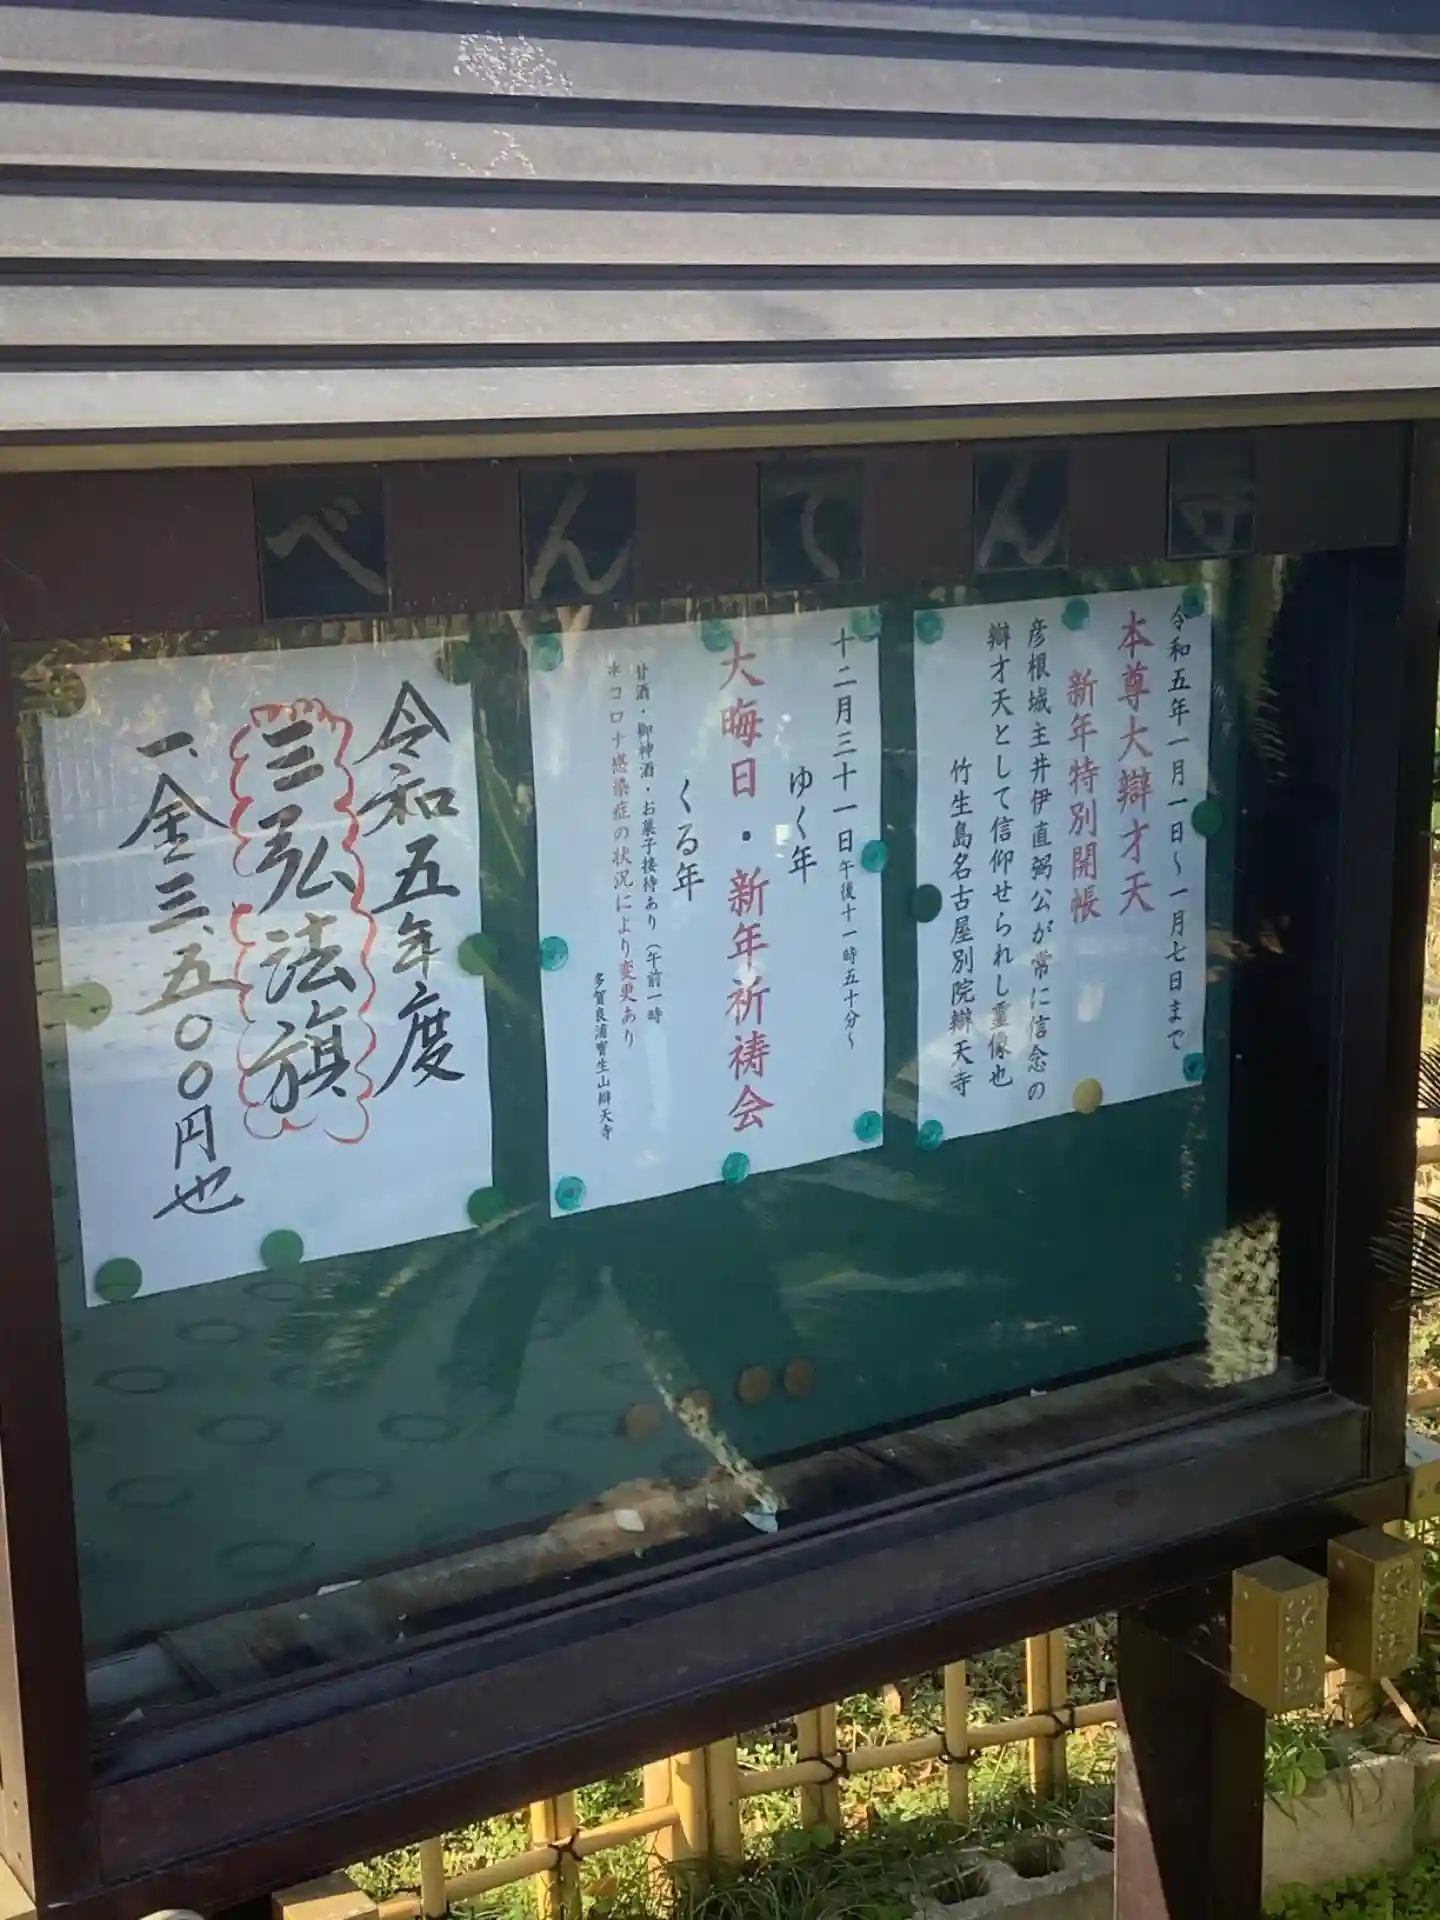 べんてん寺
令和五年一月一日～一月七日まで
本尊大辯才天
新年特別開帳
彦根城主井伊直弼公が常に信念の
辯才天として信仰せられし霊像也
竹生島名古屋別院辯天寺
十二月三十一日午後十一時五十分～
ゆく年
大晦日・新年祈祷会
くる年
甘酒・御神酒・お菓子接待あり（午前一時
＊コロナ感染症の状況により変更あり
多賀良浦寳生山辯天寺
令和五年度
三弘法旗
一、金三、五〇〇円也